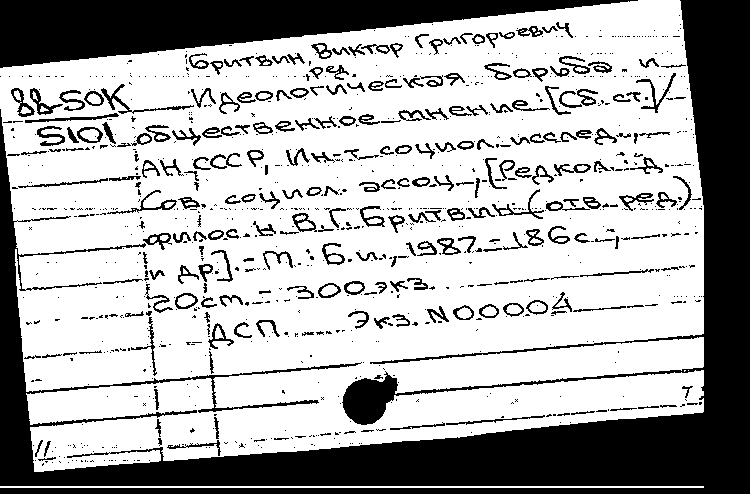 Бритвин, Виктор Григорьевич
, ред.
88-50К
5101
Идеологическая борьба и
общественное мнение : [Сб. ст.] /
АН СССР, Ин-т социол. исслед.,
Сов. социол. ассоц. ; [Редкол. : д.
филос. н. В.Г. Бритвин (отв. ред.)
и др.]. - М. : Б.и., 1987. - 186 с. ;
20 см. - 300 экз.
ДСП. Экз. N00004